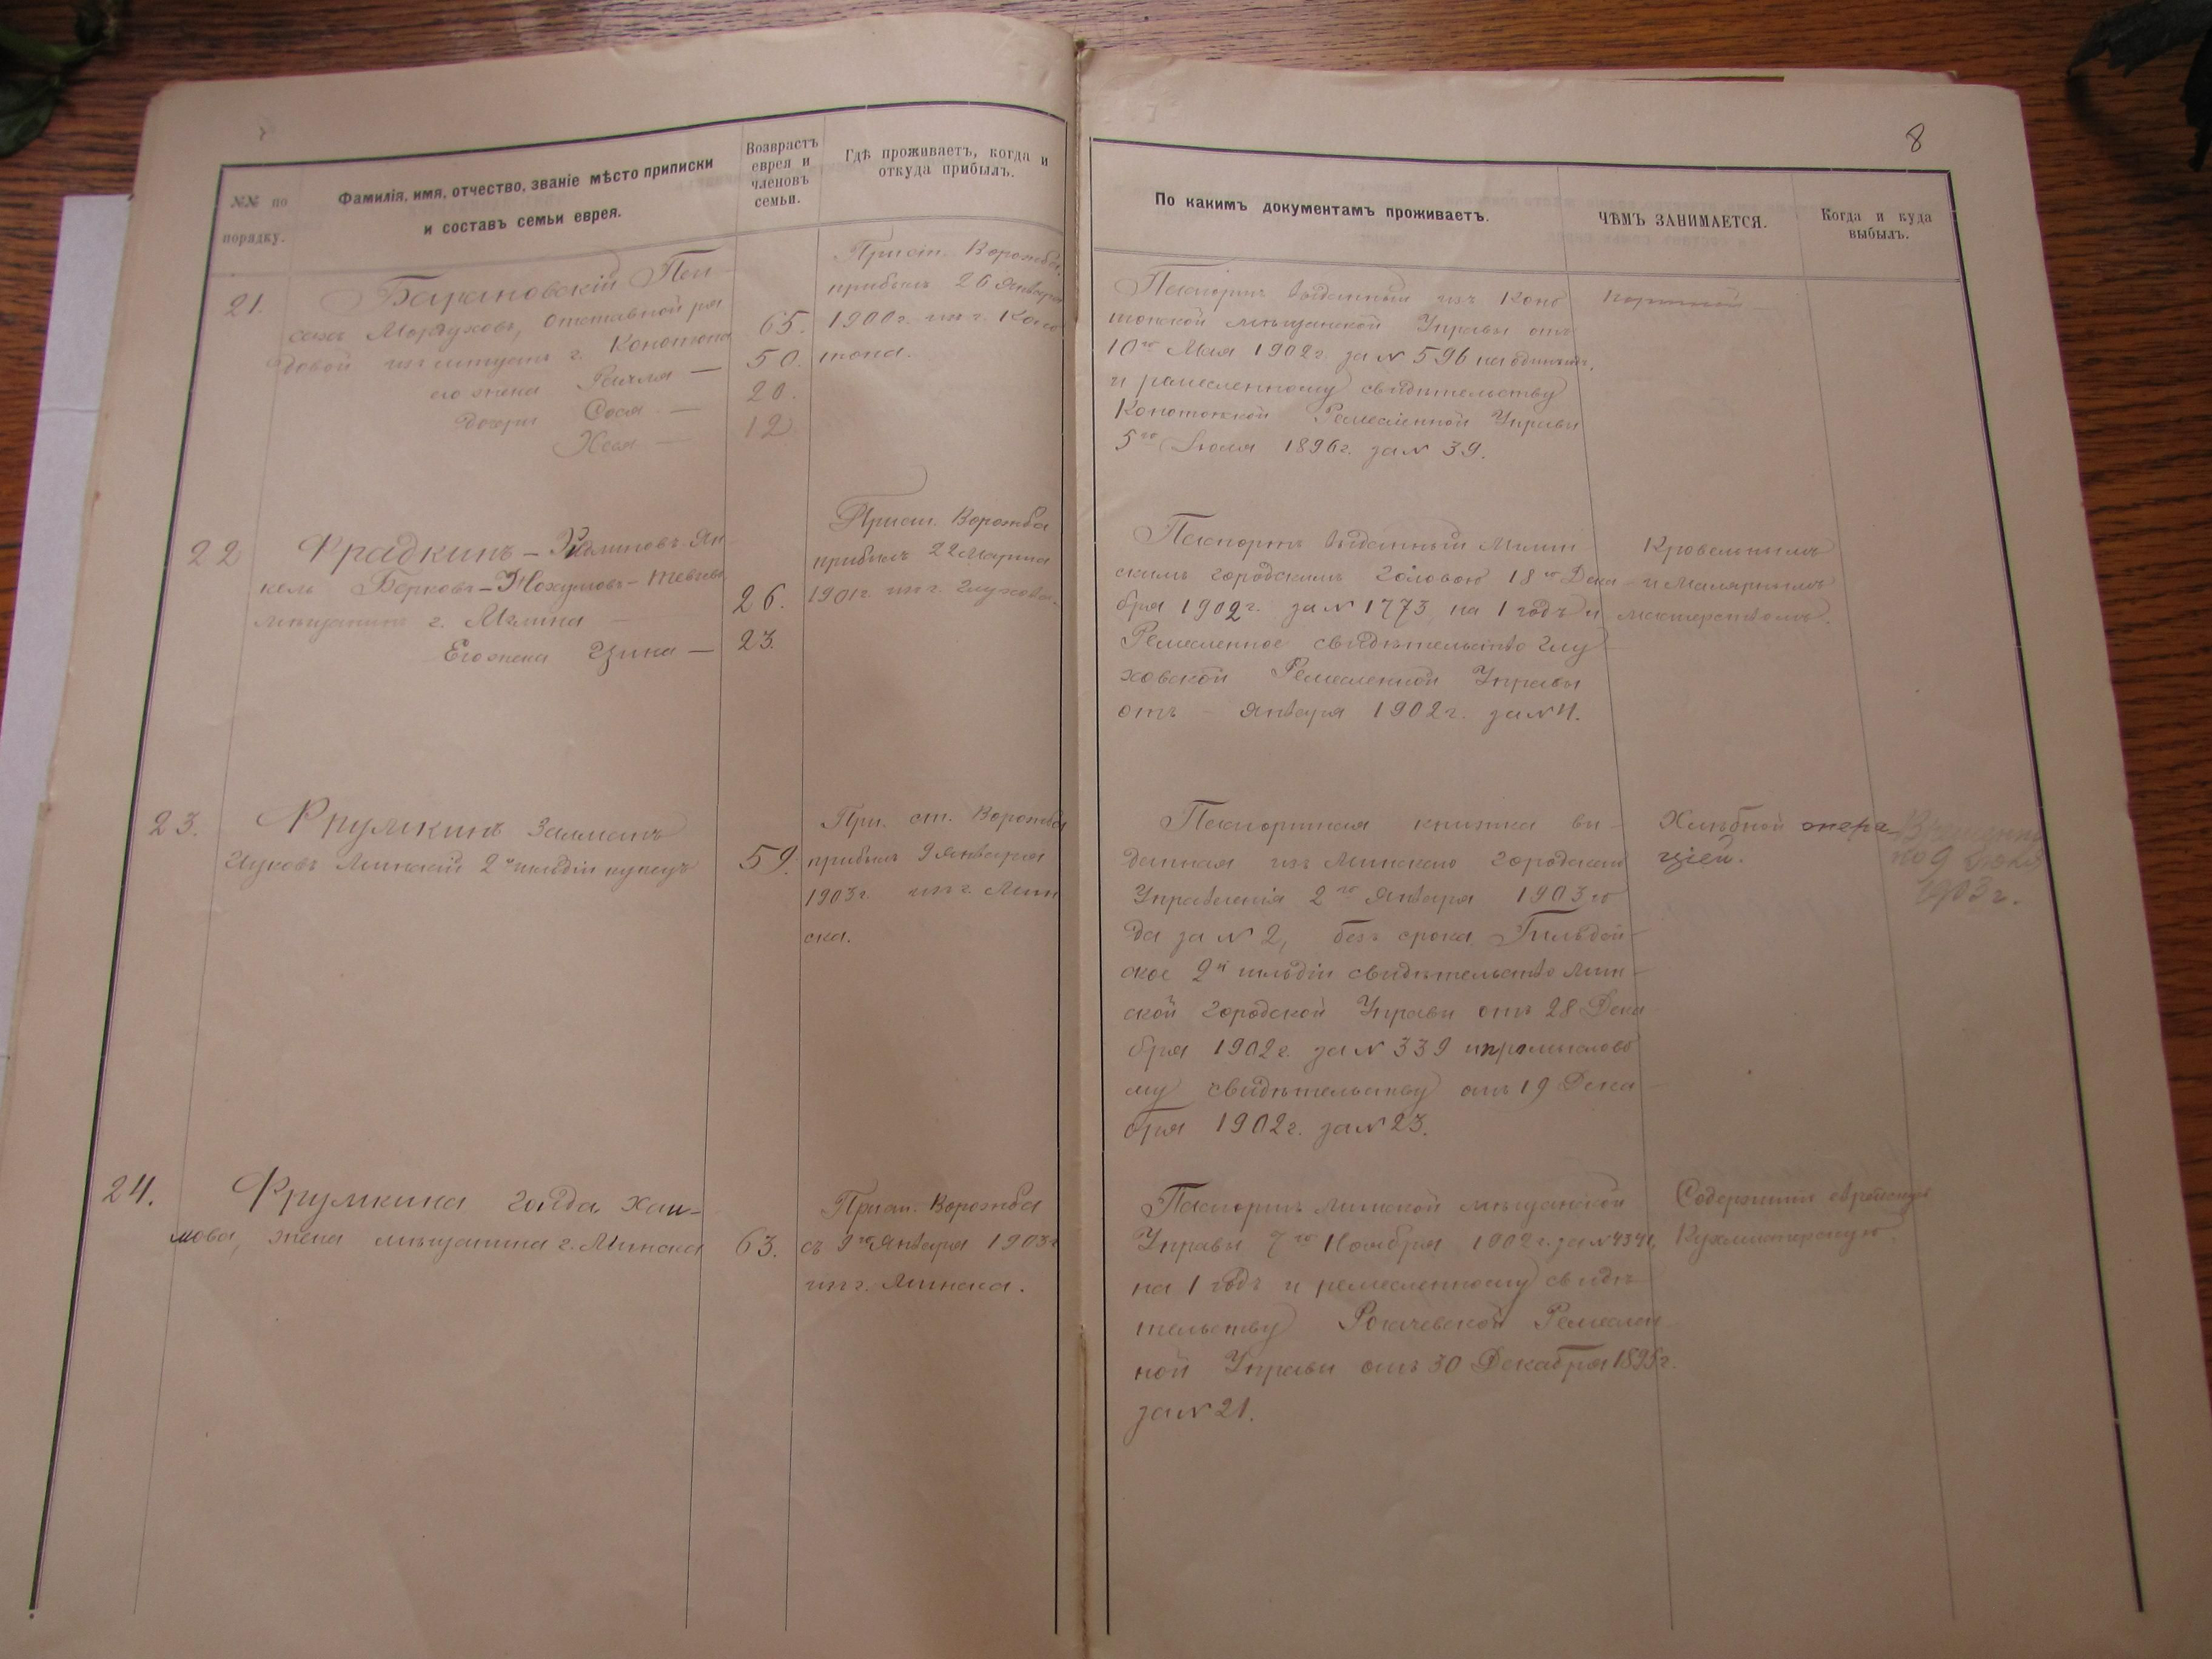 8
№№ по порядку.
Фамилія, имя, отчество, званіе мѣсто приписки
и составъ семьи еврея.
Возврастъ
еврея и
членовъ
семьи.
Гдѣ проживаетъ, когда и
откуда прибылъ.
По какимъ документамъ проживаетъ.
ЧѢМЪ ЗАНИМАЕТСЯ.
Когда и куда
выбылъ.
21.
Барановскій Пей-
сахъ Мордуховъ, отставной ря
довой изъ мещанъ г. Конотопа
65.
его жена —
50.
дочери Сося —
20.
Хася —
12
При ст. Ворожба,
прибылъ 26 Января
1900 г. изъ г. Коно
топа.
Паспортъ выданный изъ Коно
топской мѣщанской Управы отъ
10го Мая 1902 г. за № 596 на одинъ годъ,
и ремесленному свидѣтельству
Конотопской Ремесленной Управы
5го Іюля 1896 г. за № 39.
Портной
22
Фрадкинъ – Янкель Берковъ – Нохумовъ –
мѣщанинъ г. Мглина
26.
Его жена Цина —
23.
При ст. Ворожба
прибылъ 22 Марта
1901 г. изъ г. Глухова.
Паспортъ выданный Мглин
скимъ городскимъ головою 18го Дека
бря 1902 г. за № 1773 на 1 годъ и
Ремесленное свидѣтельство Глу
ховской Ремесленной Управы
отъ – Января 1902 г. за № 4.
Кровельнымъ
и Малярнымъ
мастерствомъ.
23.
Фрумкинъ Залманъ
Ицковъ Минскій 2й гильдіи купецъ
59.
При. ст. Ворожба
прибылъ 9 Января
1903 г. изъ г. Мин
ска.
Паспортная книжка вы-
данная изъ Минскаго городскаго
Управленія 2го Января 1903 го
да за № 2, безъ срока Гильдей-
ское 2й гильдіи свидѣтельство Мин-
ской городской Управы отъ 28 Дека
бря 1902 г. за № 339 и промыслово
му свидѣтельству отъ 19 Дека-
бря 1902 г. за № 23.
Хлѣбной опера-
ціей.
по 9 Іюля
1903 г.
24.
Фрумкина Голда Хаи-
мова, жена мѣщанина г. Минска
63.
При ст. Ворожба
съ 9го Января 1903 г.
изъ г. Минска.
Паспортъ Минской мѣщанской
Управы 7го Ноября 1902 г. за № 4341,
на 1 годъ и ремесленному свидѣ
тельству Рогачевской Ремеслен
ной Управы отъ 30 Декабря 1895 г.
за № 21.
Содержитъ еврейскую
Кухмистерскую.